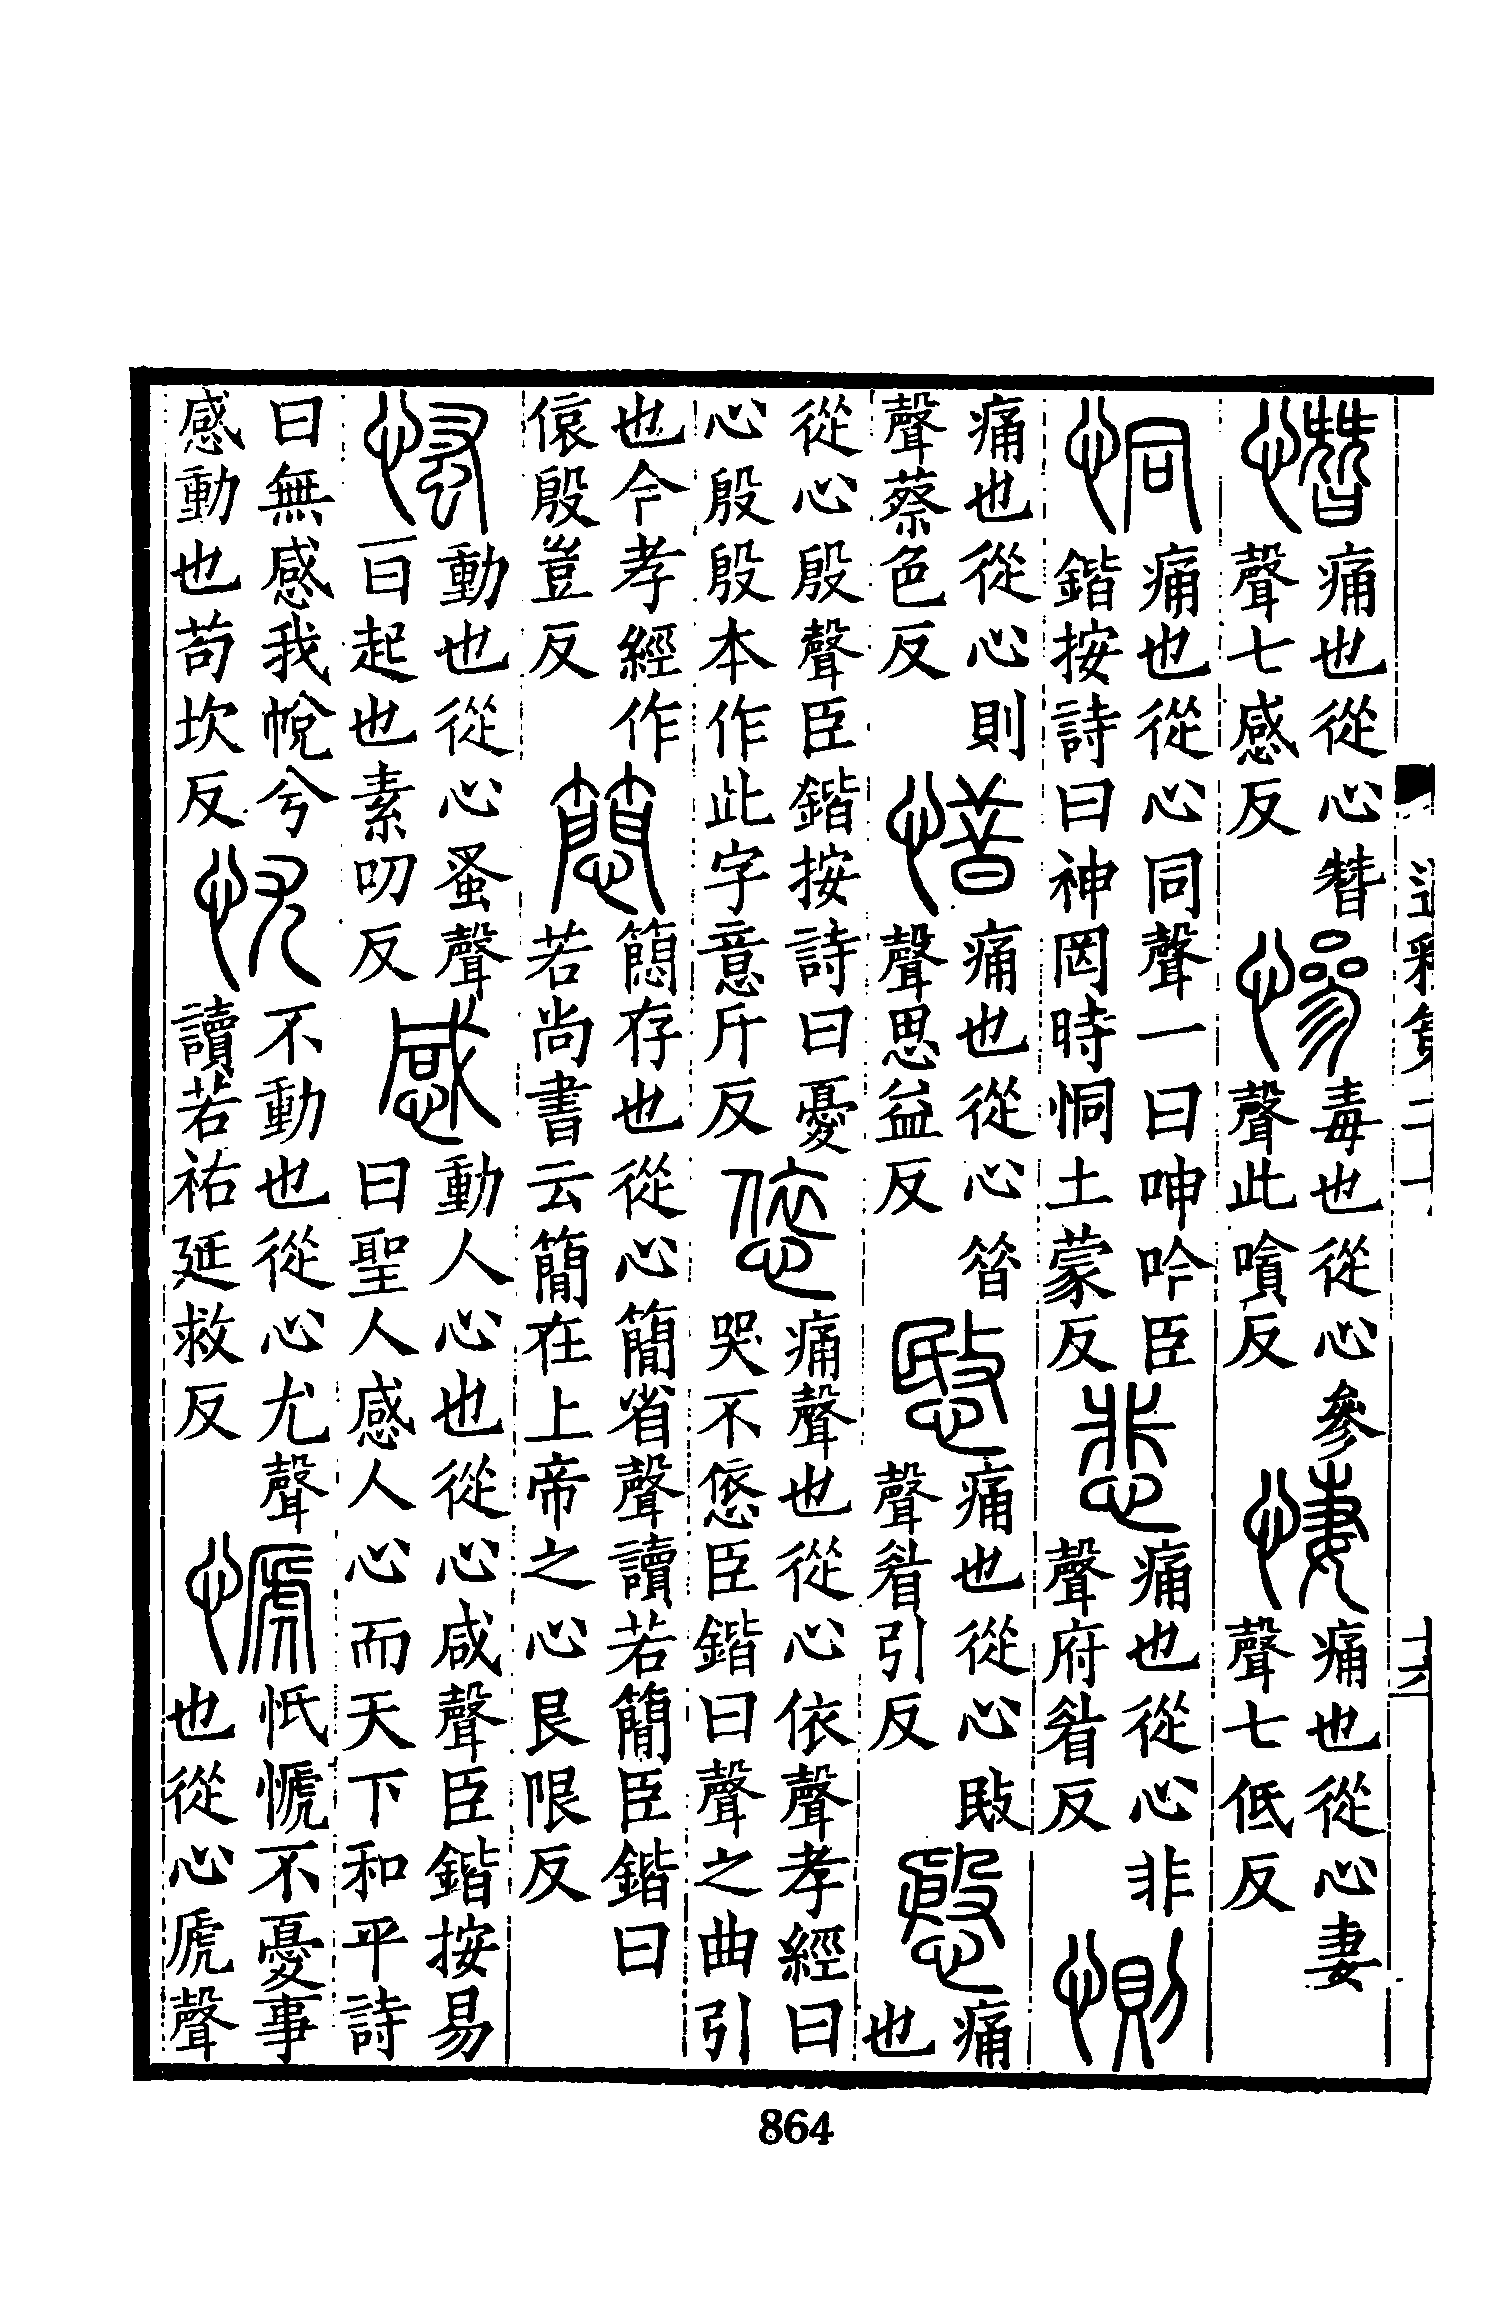 憯痛也從心朁聲七感反慘毒也從心參聲此嗿反悽痛也從心妻聲七低反
恫痛也從心同聲一曰呻吟臣鍇按詩曰神罔時恫土蒙反悲痛也從心非聲府睂反惻
痛也從心則聲蔡色反惜痛也從心㫺聲思益反愍痛也從心敃聲睂引反慇痛也
從心殷聲臣鍇按詩曰憂心殷殷本作此字意斤反㥋痛聲也從心依聲孝經曰哭不㥋臣鍇曰聲之曲引
也今孝經作偯殷豈反𥳑𥳑存也從心簡省聲讀若簡臣鍇曰若尚書云簡在上帝之心艮限反
慅動也從心蚤聲一曰起也素叨反感動人心也從心咸聲臣鍇按易曰聖人感人心而天下和平詩
曰無感我帨兮感動也苟坎反忧不動也從心尤聲讀若祐延救反㥴怟㥴不憂事也從心虒聲
十六
864